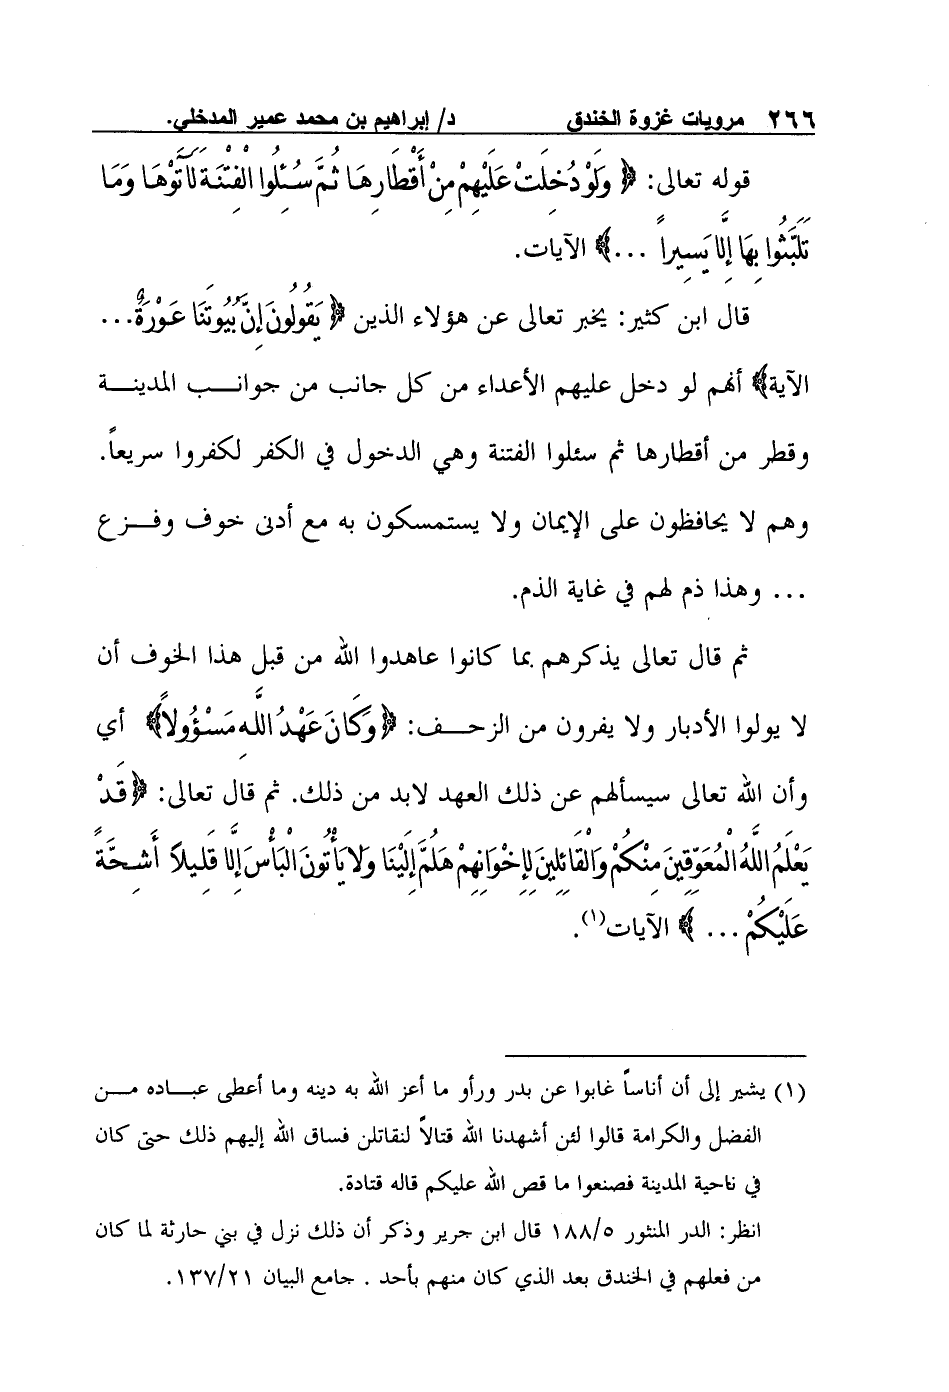 ٢٦٦ مرويات غزوة الخندق د/ إبراهيم بن محمد عمير المدخلي.
قوله تعالى: ﴿ وَلَوْ دُخِلَتْ عَلَيْهِمْ مِنْ أَقْطَارِهَا ثُمَّ سُئِلُوا الْفِتْنَةَ لَآتَوْهَا وَمَا
تَلَبَّثُوا بِهَا إِلَّا يَسِيراً ...﴾ الآيات.
قال ابن كثير: يخبر تعالى عن هؤلاء الذين ﴿ يَقُولُونَ إِنَّ بُيُوتَنَا عَوْرَةٌ...
الآية﴾ أنهم لو دخل عليهم الأعداء من كل جانب من جوانب المدينة
وقطر من أقطارها ثم سئلوا الفتنة وهي الدخول في الكفر لكفروا سريعاً.
وهم لا يحافظون على الإيمان ولا يستمسكون به مع أدنى خوف وفزع
... وهذا ذم لهم في غاية الذم.
ثم قال تعالى يذكرهم بما كانوا عاهدوا الله من قبل هذا الخوف أن
لا يولوا الأدبار ولا يفرون من الزحف: ﴿وَكَانَ عَهْدُ اللَّهِ مَسْؤُولاً﴾ أي
وأن الله تعالى سيسألهم عن ذلك العهد لابد من ذلك. ثم قال تعالى: ﴿ قَدْ
يَعْلَمُ اللَّهُ الْمُعَوِّقِينَ مِنْكُمْ وَالْقَائِلِينَ لِإِخْوَانِهِمْ هَلُمَّ إِلَيْنَا وَلَا يَأْتُونَ الْبَأْسَ إِلَّا قَلِيلاً أَشِحَّةً
عَلَيْكُمْ ... ﴾ الآيات(١).
(١) يشير إلى أن أناساً غابوا عن بدر ورأو ما أعز الله به دينه وما أعطى عباده من
الفضل والكرامة قالوا لئن أشهدنا الله قتالاً لنقاتلن فساق الله إليهم ذلك حتى كان
في ناحية المدينة فصنعوا ما قص الله عليكم قاله قتادة.
انظر: الدر المنثور ١٨٨/٥ قال ابن جرير وذكر أن ذلك نزل في بني حارثة لما كان
من فعلهم في الخندق بعد الذي كان منهم بأحد . جامع البيان ١٣٧/٢١.